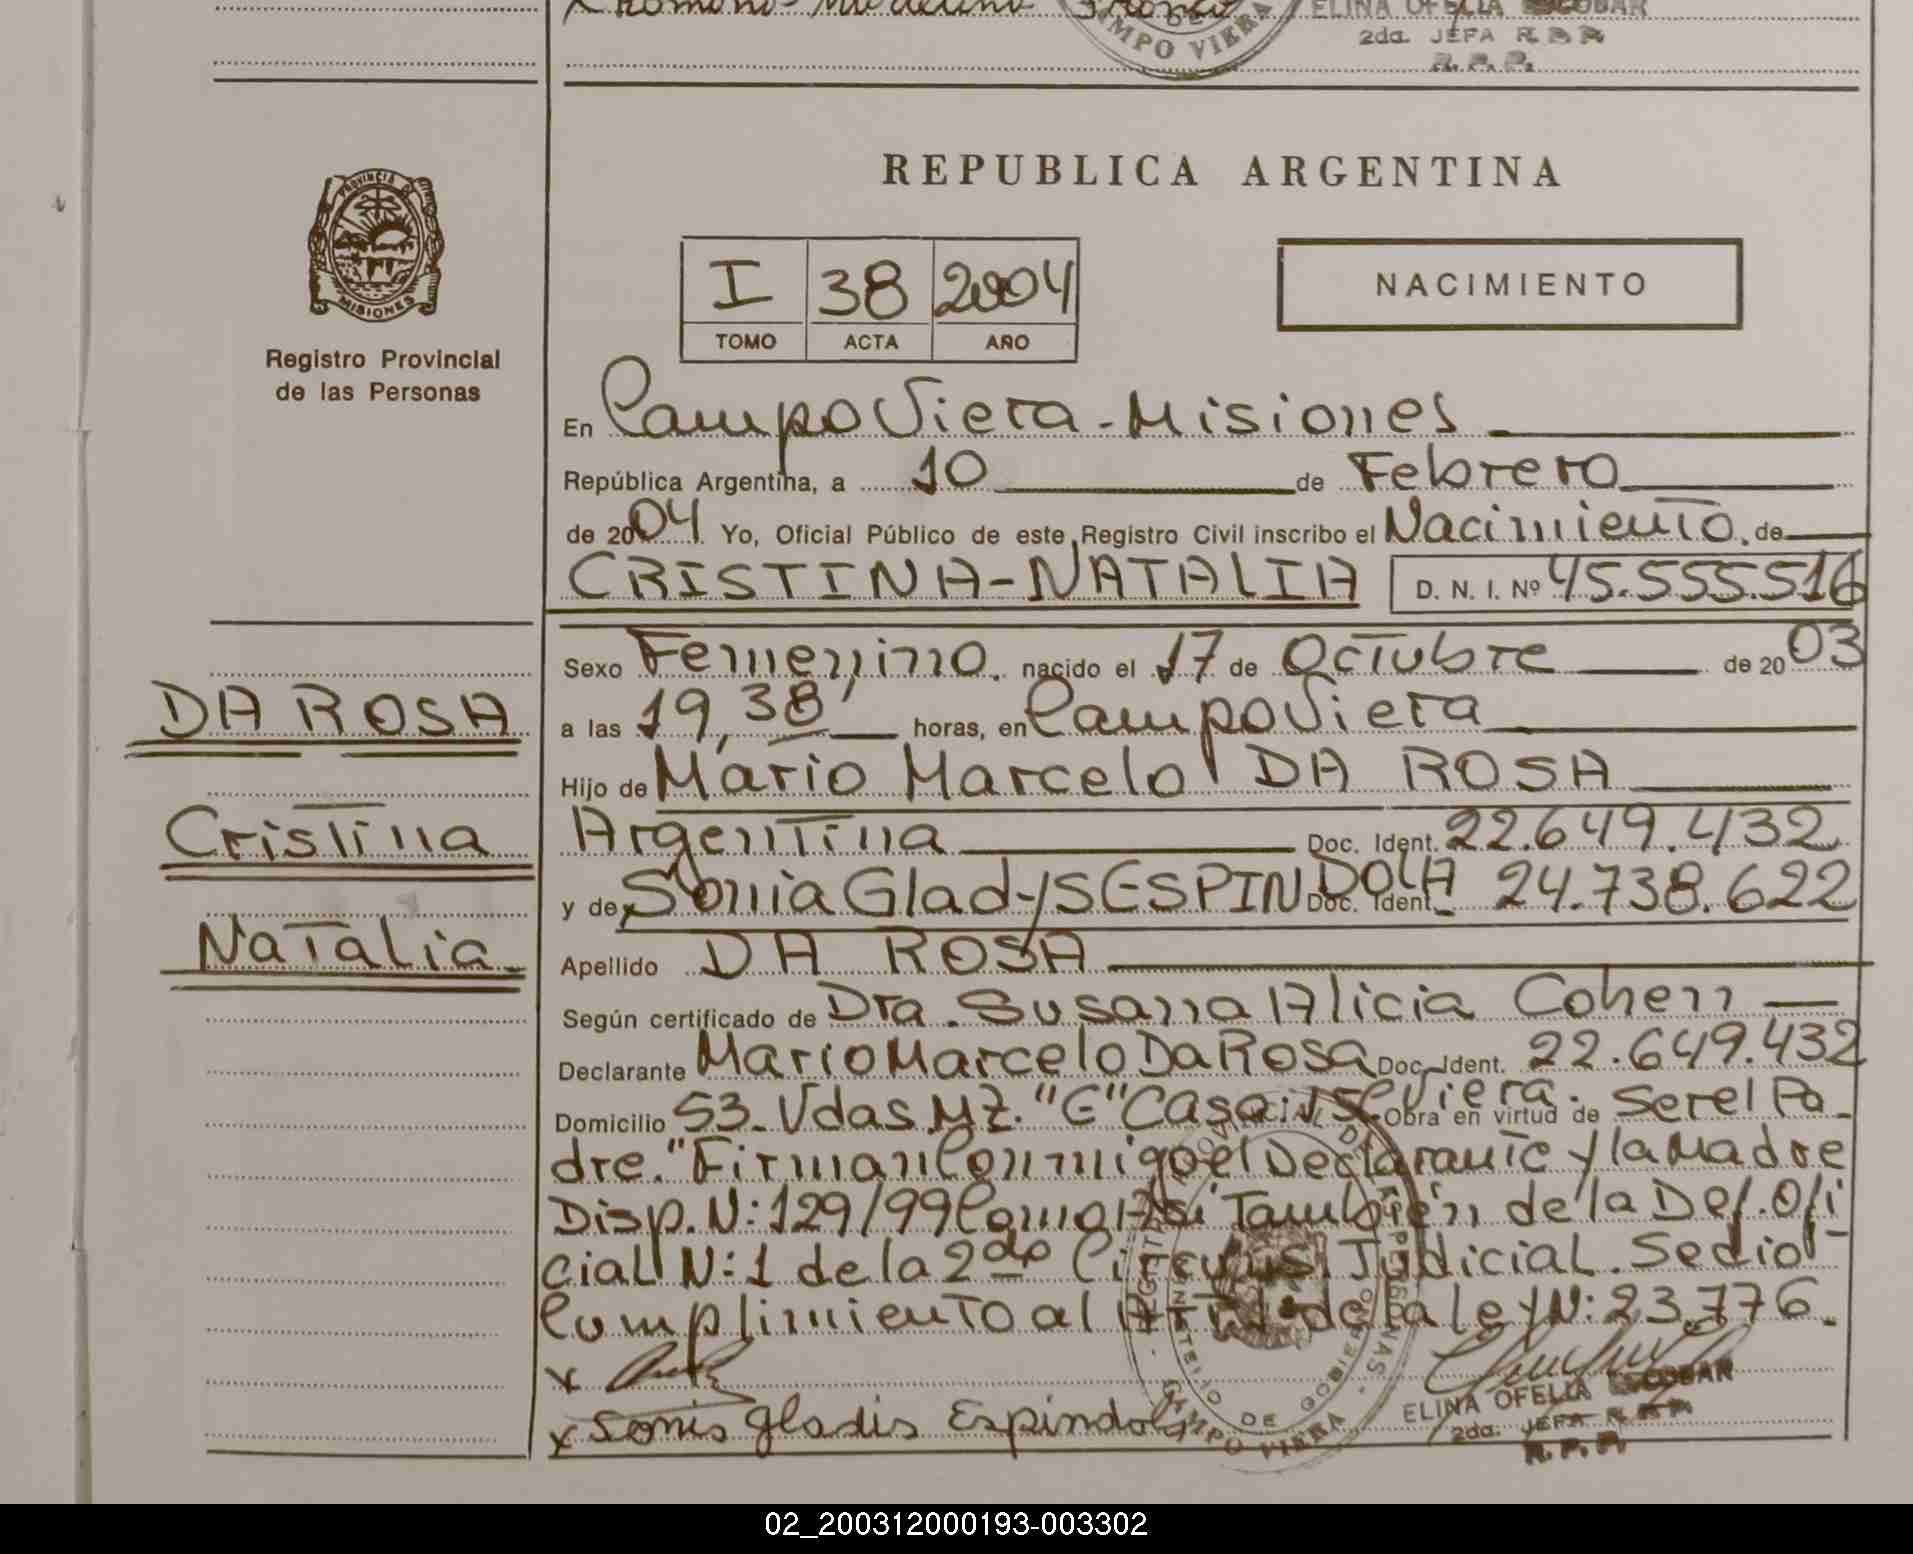 ELINA OFELIA ESCOBAR
2da. JEFA R.P.P.
R.P.P.
CAMPO VIERA
REPUBLICA ARGENTINA
PROVINCIA DE MISIONES
Registro Provincial
de las Personas
I 38 2004
TOMO ACTA AÑO
NACIMIENTO
En Campo Viera - Misiones
República Argentina, a 10 de Febrero
de 2004. Yo, Oficial Público de este Registro Civil inscribo el Nacimiento. de
CRISTINA-NATALIA D. N. I. Nº 45.555.516
Sexo Femenino. nacido el 17 de Octubre de 2003
DA ROSA
a las 19,38 horas, en Campo Viera
Hijo de Mario Marcelo DA ROSA
Cristina
Argentina Doc. Ident. 22.649.432
y de Sonia Gladys ESPINDOLA Doc. Ident. 24.738.622
Natalia
Apellido DA ROSA
Según certificado de Dra. Susana Alicia Cohen
Declarante Mario Marcelo Da Rosa Doc. Ident. 22.649.432
Domicilio 53. Vdas. Mz. "E" Casa C. Viera. Obra en virtud de Ser el Pa
dre. "Firman Conmigo el Declarante y la Madre
Disp. N: 129/99 Como Asi También de la Def. Ofi
cial N: 1 de la 2da Circuns Judicial. Se dio
Cumplimiento al de la ley N: 23.776.
x
x Sonia Gladis Espindola
CAMPO VIERA
ELINA OFELIA ESCOBAR
2da. JEFA R.P.P.
R.P.P.
02_200312000193-003302